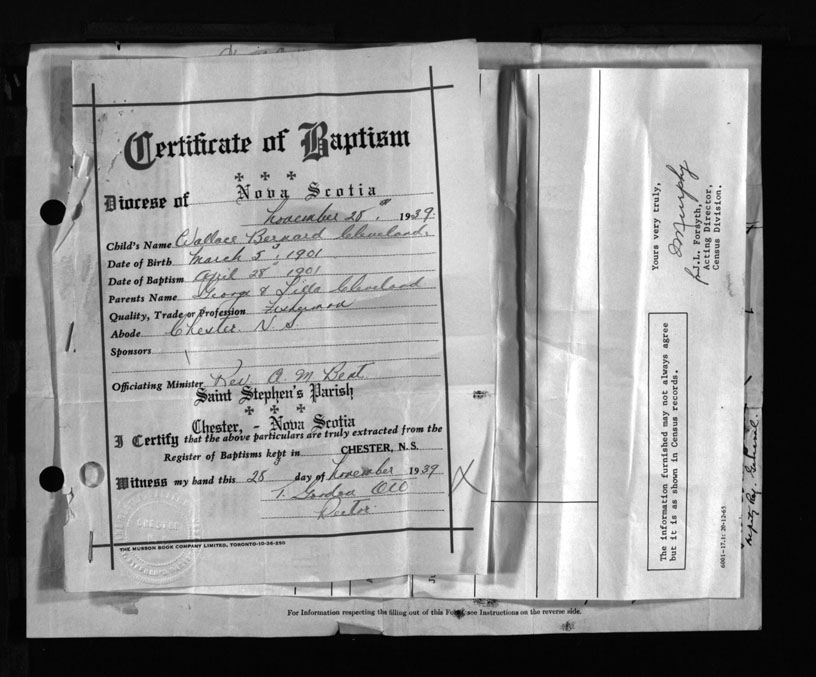 Certificate of Baptism
Diocese of Nova Scotia
November 28th, 1939.
Child's Name Wallace Bernard Cleveland.
Date of Birth March 5th, 1901
Date of Baptism April 28th 1901
Parents Name George & Lilla Cleveland
Quality, Trade or Profession Fisherman
Abode Chester. N. S.
Sponsors
Officiating Minister Rev A. M. Bent
Saint Stephen's Parish
Chester, - Nova Scotia
I Certify that the above particulars are truly extracted from the
Register of Baptisms kept in CHESTER, N.S.
Witness my hand this 28 day of November 1939
T.
Rector.
THE MUSSON BOOK COMPANY LIMITED, TORONTO-10-36-250
Yours very truly,
Murphy
J.L. Forsyth,
Acting Director,
Census Division.
The information furnished may not always agree
but it is as shown in Census records.
6001-17.1: 20-12-65
Deputy Reg. General.
For Information respecting the filling out of this Form, see Instructions on the reverse side.